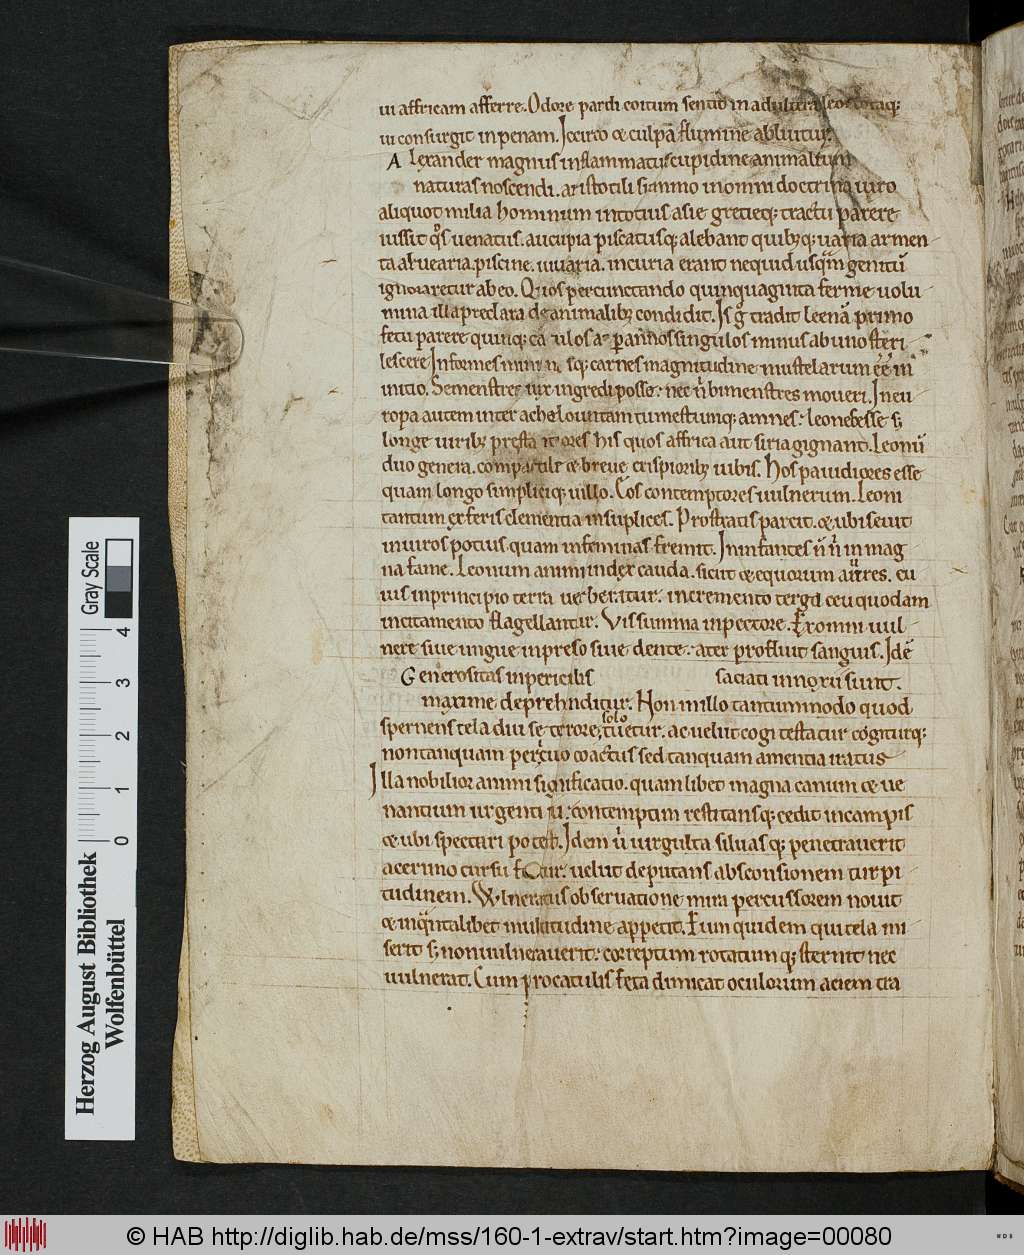 ui affricam afferre. Odore pardi coitum sentit in adultera leo totaq;
ui consurgit in penam. Icirco & culpa flumine abluitur.
Alexander magnus inflammatus cupidine animalium
naturas noscendi. aristotili summo in omni doctrina uiro
aliquot milia hominum in totius asie greciq; tractu parere
iussit qͦs uenatus. aucupia piscatusq; alebant quibꝰq; uaria armen
ta aluearia. piscine. uiuaria. in curia erant nequid usq̄m genitū
ignoraretur ab eo. Quos percunctando quinquaginta ferme uolu
mina illa preclara de animalibꝰ condidit. Is g̊ tradit leenā primo
fetu parere quinq; catulos ac p annos singulos minus ab uno steri
lescere Informes minimasq; carnes magnitudine mustelarum ēē in
inicio. Semenstres uix ingredi posse. nec ṅ bimenstres moueri. In eu
ropa autem inter acheloum tantum nestumq; amnes. leones esse s;
longe uiribꝰ prestantiores his quos affrica aut siria gignant. Leonū
duo genera. compactile & breue crispioribꝰ iubis. Hos pauidiores esse
quam longo simpliciq; uillo. Eos contemptores uulnerum. Leoni
tantum ex feris clementia in suplices. Prostratis parcit. & ubi seuit
in uiros potius quam in feminas fremit. In infantes ṅ ṅ in mag
na fame. Leonum animi index cauda. sicut & equorum aures. cu
ius in principio terra uerberatur. incremento terga ceu quodam
incitamento flagellantur. Vis summa in pectore. Ex omni uul
nere siue ungue inpreso siue dente. ater profluit sanguis. Idē
Generositas in periclis saciati innoxii sunt.
maxime deprehnditur. Non in illo tantummodo quod
spernens tela diu se terrore solo tuetur. ac uelut cogi testatur cogiturq;
non tanquam periculo coactus sed tanquam amentia iratus
Illa nobilior animi significatio. quamlibet magna canum & ue
nantium urgenti ui. contemptim restitansq; cedit in campis
& ubi spectari potest. Idem ů uirgulta siluasq; penetrauerit
acerrimo cursu fertur. uelut deputans absconsionem turpi
tudinem. Wlneratus obseruatione mira percussorem nouit
& in q̄ntalibet multitudine appetit. Eum quidem qui tela mi
serit s; non uulnerauerit. correptum rotatumq; sternit nec
uulnerat. Cum pro catulis feta dimicat oculorum aciem tra
Gray Scale
4
3
2
1
0
Herzog August Bibliothek
Wolfenbüttel
© HAB http://diglib.hab.de/mss/160-1-extrav/start.htm?image=00080